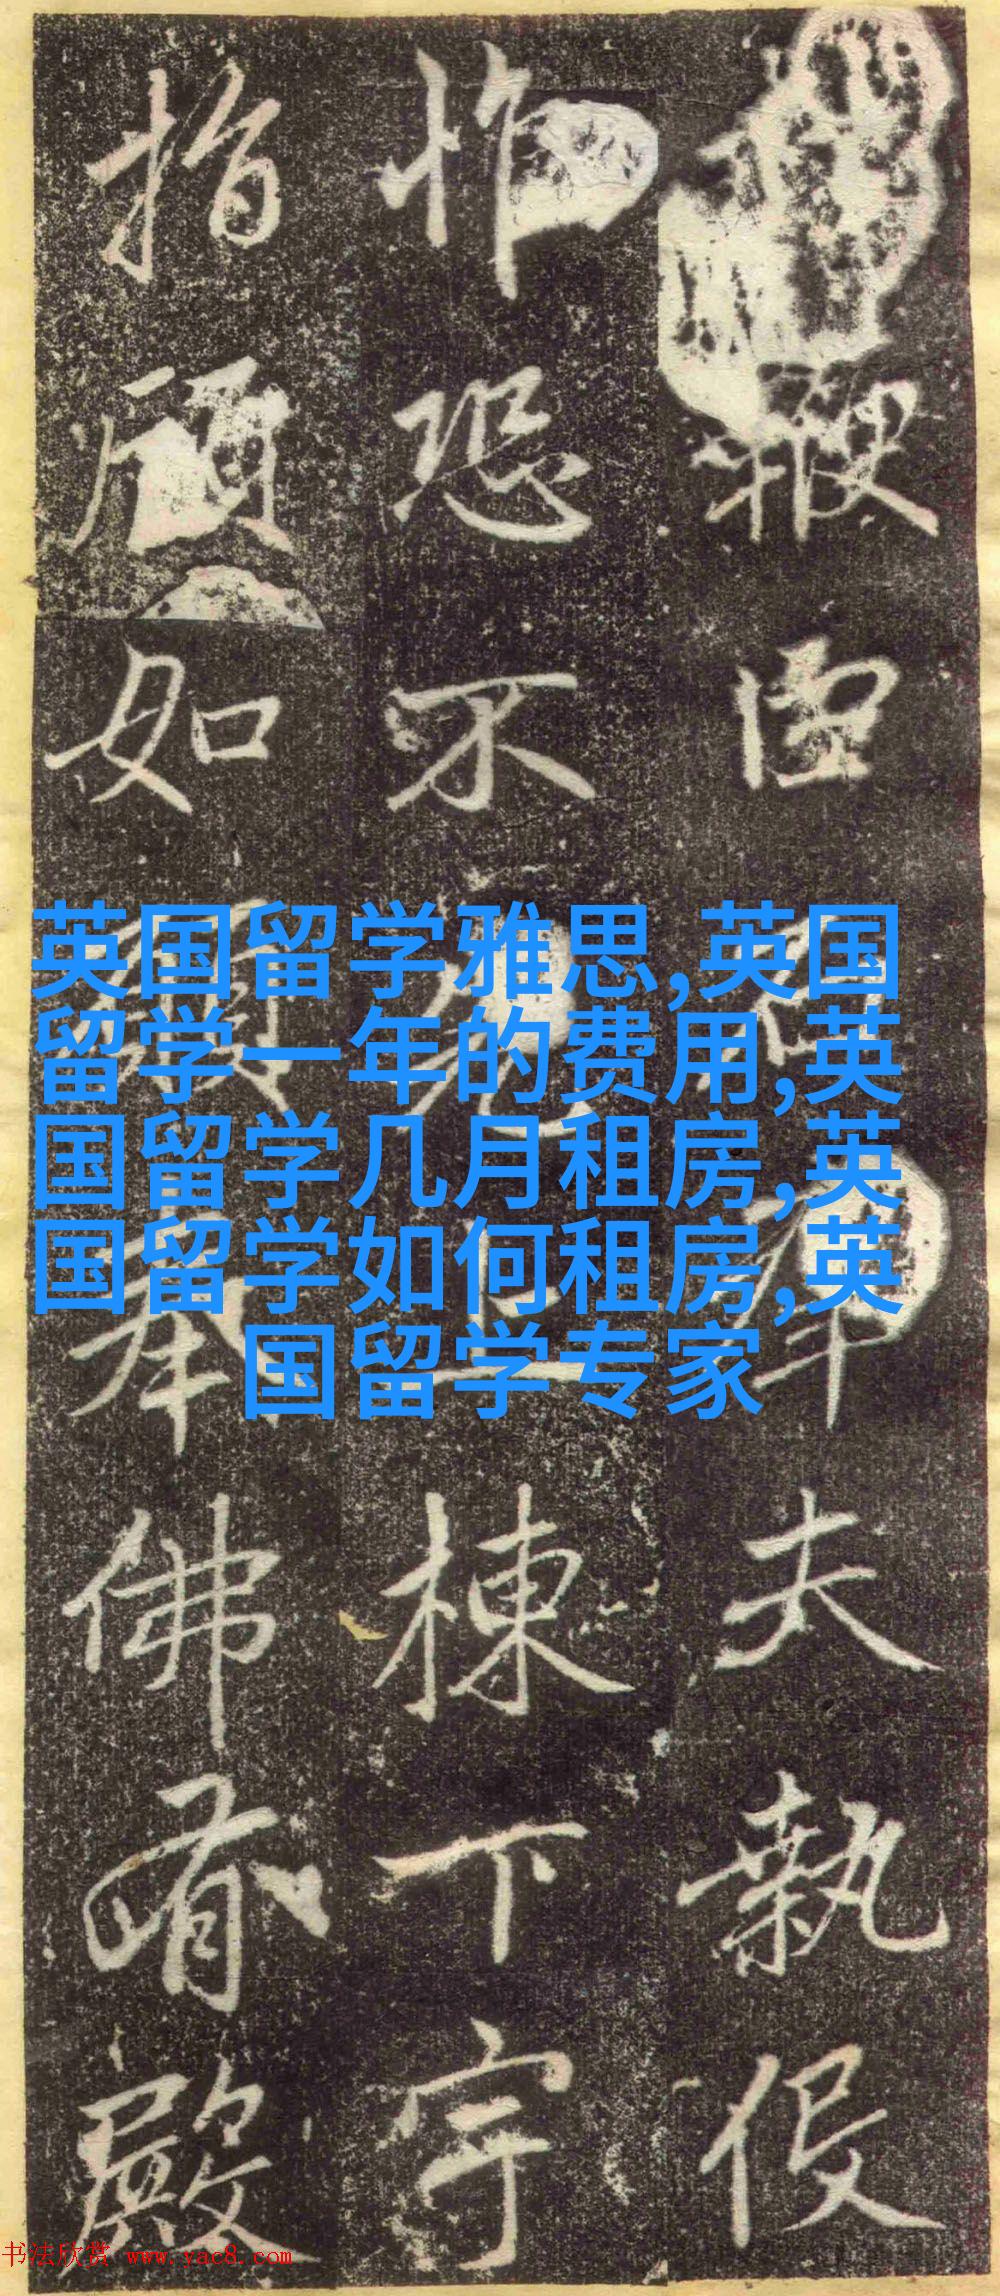 夫執役
怍恐不上棟下宇
指顧如奉佛有殿
英国留学雅思,英国
留学一年的费用,英
国留学几月租房,英
国留学如何租房,英
国留学专家
书法欣赏 www.yac8.com